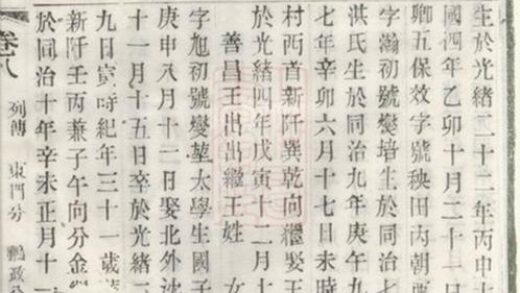 生於光緒二十二年丙申十
國四年乙卯十月二十一日
卿五保效字號秧田內朝西
字瀚初號燮培生於同治七
洪氏生於同治九年庚午九
七年辛卯六月十七日未時
村西首新阡巽乾向繼娶王
於光緒四年戊寅十二月十
善昌王出出繼王姓 女
字旭初號燮堃太學生國子
庚申八月十二日娶北外沙
十一月十五日卒於光緒二
九日寅時紀年三十一歲
新阡壬丙兼子午向分金
於同治十年辛未正月十
卷八 列傳 東門分 鵬政分